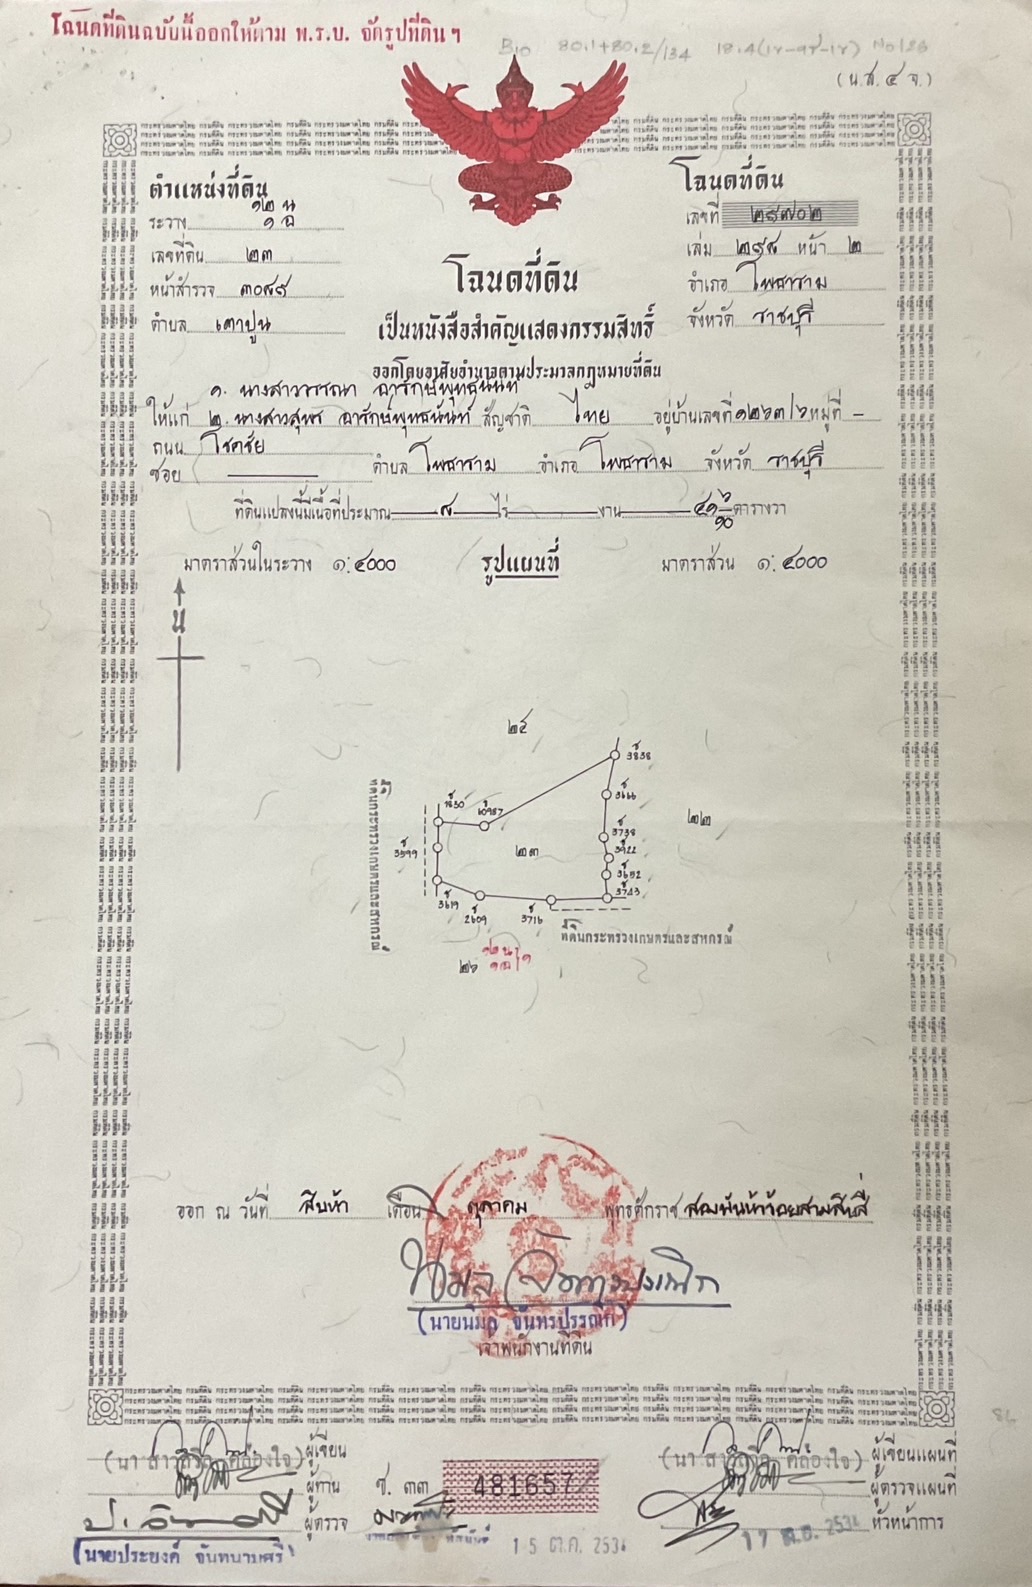 โฉนดที่ดินฉบับนี้ออกให้ตาม พ.ร.บ. จัดรูปที่ดินฯ
(น.ส. ๔ จ.)
ตำแหน่งที่ดิน
ระวาง
เลขที่ดิน ๒๓
หน้าสำรวจ
ตำบล เตาปูน
โฉนดที่ดิน
เลขที่ ๒๙๗๐๒
เล่ม หน้า ๒
อำเภอ โพธาราม
จังหวัด ราชบุรี
โฉนดที่ดิน
เป็นหนังสือสำคัญแสดงกรรมสิทธิ์
ออกโดยอาศัยอำนาจตามประมวลกฎหมายที่ดิน
๑. นางสาววรรณา อารักษ์พุทธนันท์
ให้แก่ ๒. นางสาวสุพร อารักษ์พุทธนันท์ สัญชาติ ไทย อยู่บ้านเลขที่ ๑๒๖๓/๖ หมู่ที่ –
ถนน โชคชัย
ซอย ตำบล โพธาราม อำเภอ โพธาราม จังหวัด ราชบุรี
ที่ดินแปลงนี้มีเนื้อที่ประมาณ ไร่ งาน ตารางวา
มาตราส่วนในระวาง ๑:๔๐๐๐ รูปแผนที่ มาตราส่วน ๑:๔๐๐๐
น
๒๔
3838
3666
๒๒
1830
10987
3738
3922
3599
๒๓
3652
3743
3619
2609
3716
ที่ดินกระทรวงเกษตรและสหกรณ์
ที่ดินกระทรวงเกษตรและสหกรณ์
๒๖
ออก ณ วันที่ สิบห้า เดือน ตุลาคม พุทธศักราช สองพันห้าร้อยสามสิบสี่
(นายนิมล จันทรปรรณิก)
เจ้าพนักงานที่ดิน
ผู้เขียน
ผู้ทาน
ผู้ตรวจ
(นายประยงค์ จันทนามศรี)
ช. ๓๓ 481657
15 ต.ค. 2534
ผู้เขียนแผนที่
ผู้ตรวจแผนที่
หัวหน้าการ